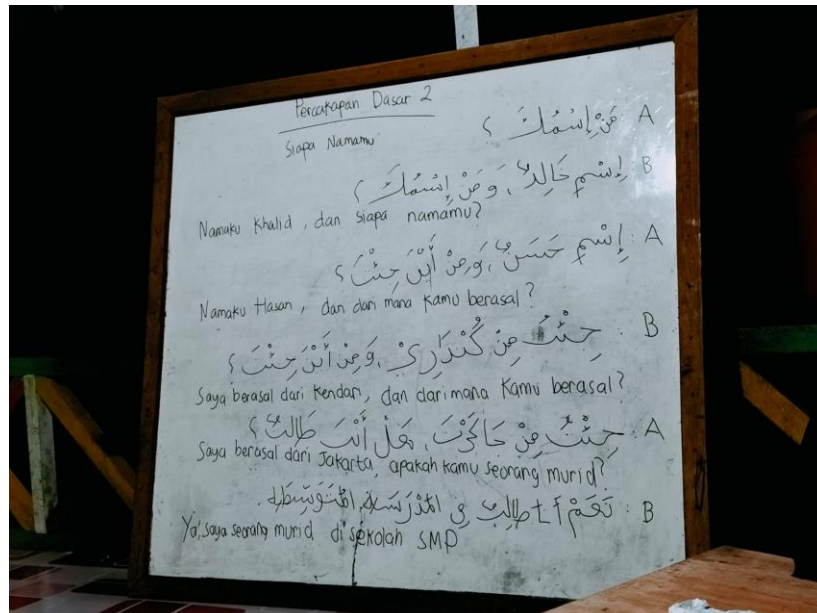 Percakapan Dasar 2
Siapa Namamu
A مَنْ إِسْمُكَ ؟
B : إِسْمِ خَالِدٌ، وَمَنْ إِسْمُكَ ؟
Namaku Khalid, dan siapa namamu?
A : إِسْمِ حَسَنٌ، وَمِنْ أَيْنَ جِئْتَ ؟
Namaku Hasan, dan dari mana kamu berasal?
B : جِئْتُ مِنْ كَنْدَارِيْ، وَمِنْ أَيْنَ جِئْتَ ؟
Saya berasal dari Kendari, dan dari mana kamu berasal?
A : جِئْتُ مِنْ جَاكَرْتَ، هَلْ أَنْتَ طَالِبٌ ؟
Saya berasal dari Jakarta, apakah kamu seorang murid?
B : نَعَمْ أَنَا طَالِبٌ فِي الْمَدْرَسَةِ الْمُتَوَسِّطَةِ.
Ya, saya seorang murid di sekolah SMP